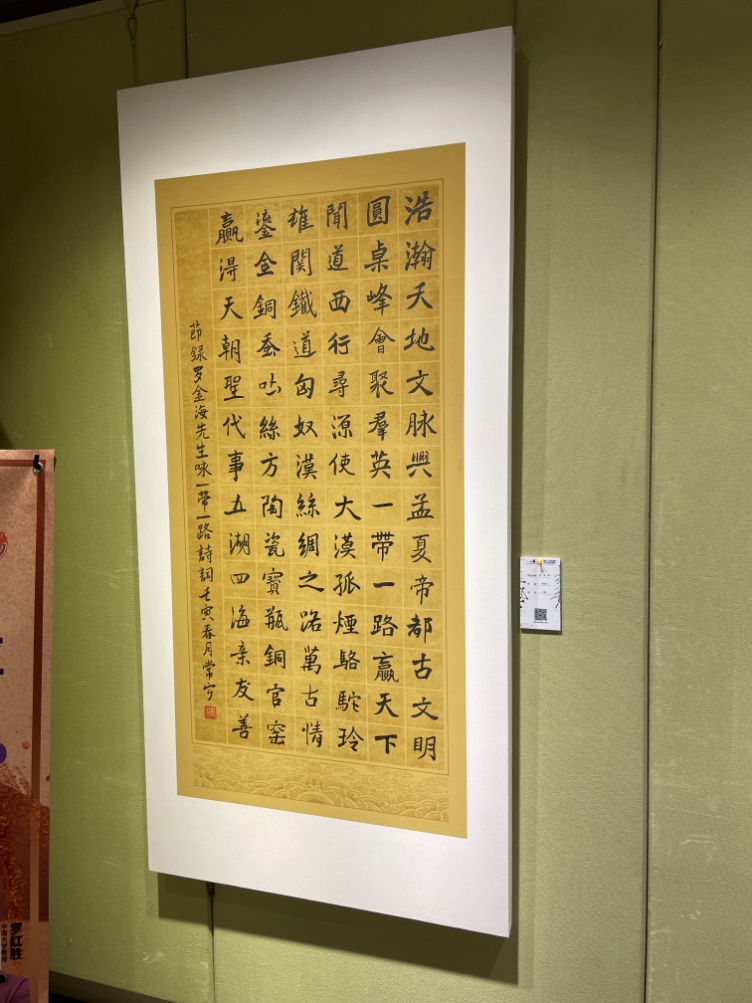 浩瀚天地文脉興孟夏帝都古文明
圓桌峰會聚羣英一帶一路贏天下
聞道西行尋源使大漠孤煙駱駝玲
雄関鐵道匈奴漠絲綢之路萬古情
鎏金銅蚕吐絲方陶瓷寳瓶銅官窑
贏得天朝聖代事五湖四海亲友善
節録罗金海先生咏一带一路詩詞壬寅春月常宁
罗紅胜
中南大学教授